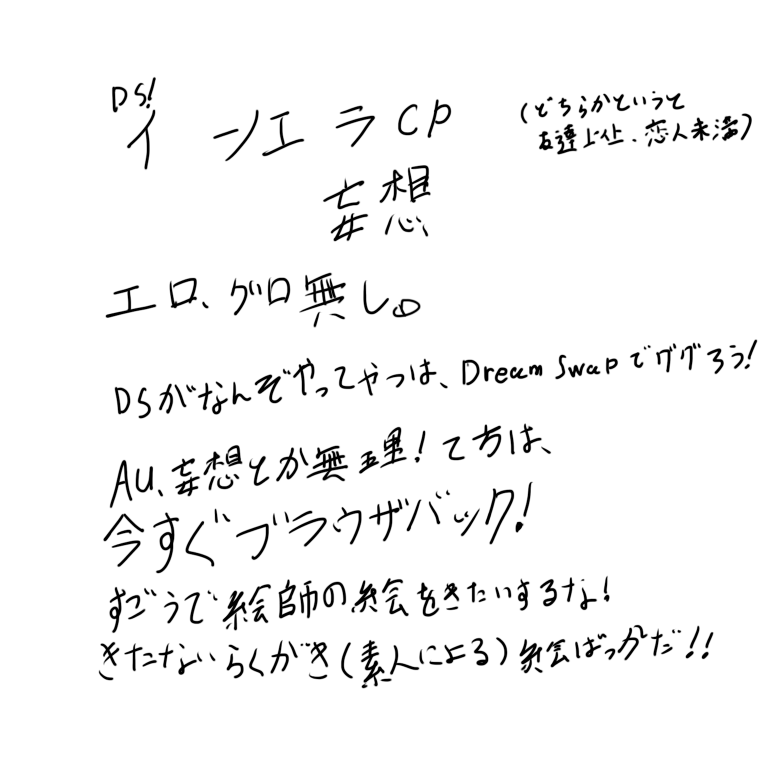 DS!
インエラCP
(どちらかというと
友達以上、恋人未満)
妄想
エロ、グロ無し。
DSがなんぞやってやつは、Dream Swapでググろう!
AU、妄想とか無理!て方は、
今すぐブラウザバック!
すごうで絵師の絵をきたいするな!
きたないらくがき(素人による)絵ばっかだ!!